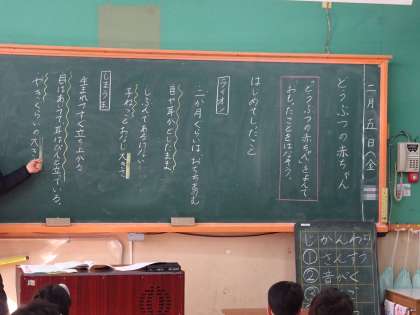 二月五日(金)
どうぶつの赤ちゃん
「どうぶつの赤ちゃん」をよんで、
おもったことをはなそう。
はじめてしたこと
ライオン
二か月ぐらいは、おちちをのむ
目や耳がとじたまま
じぶんであるけない
子ねこぐらいの大きさ
しまうま
生まれてすぐ立ち上がる
目はあいていて耳はぴんと立っている。
やぎぐらいの大きさ
じかんわり
①さんすう
②音がく
③